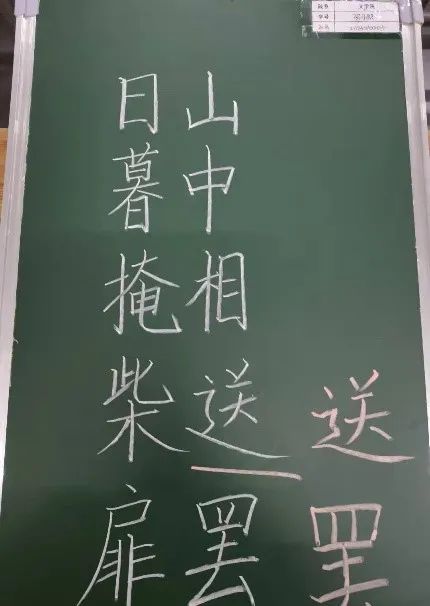 山中相送罢
日暮掩柴扉
送